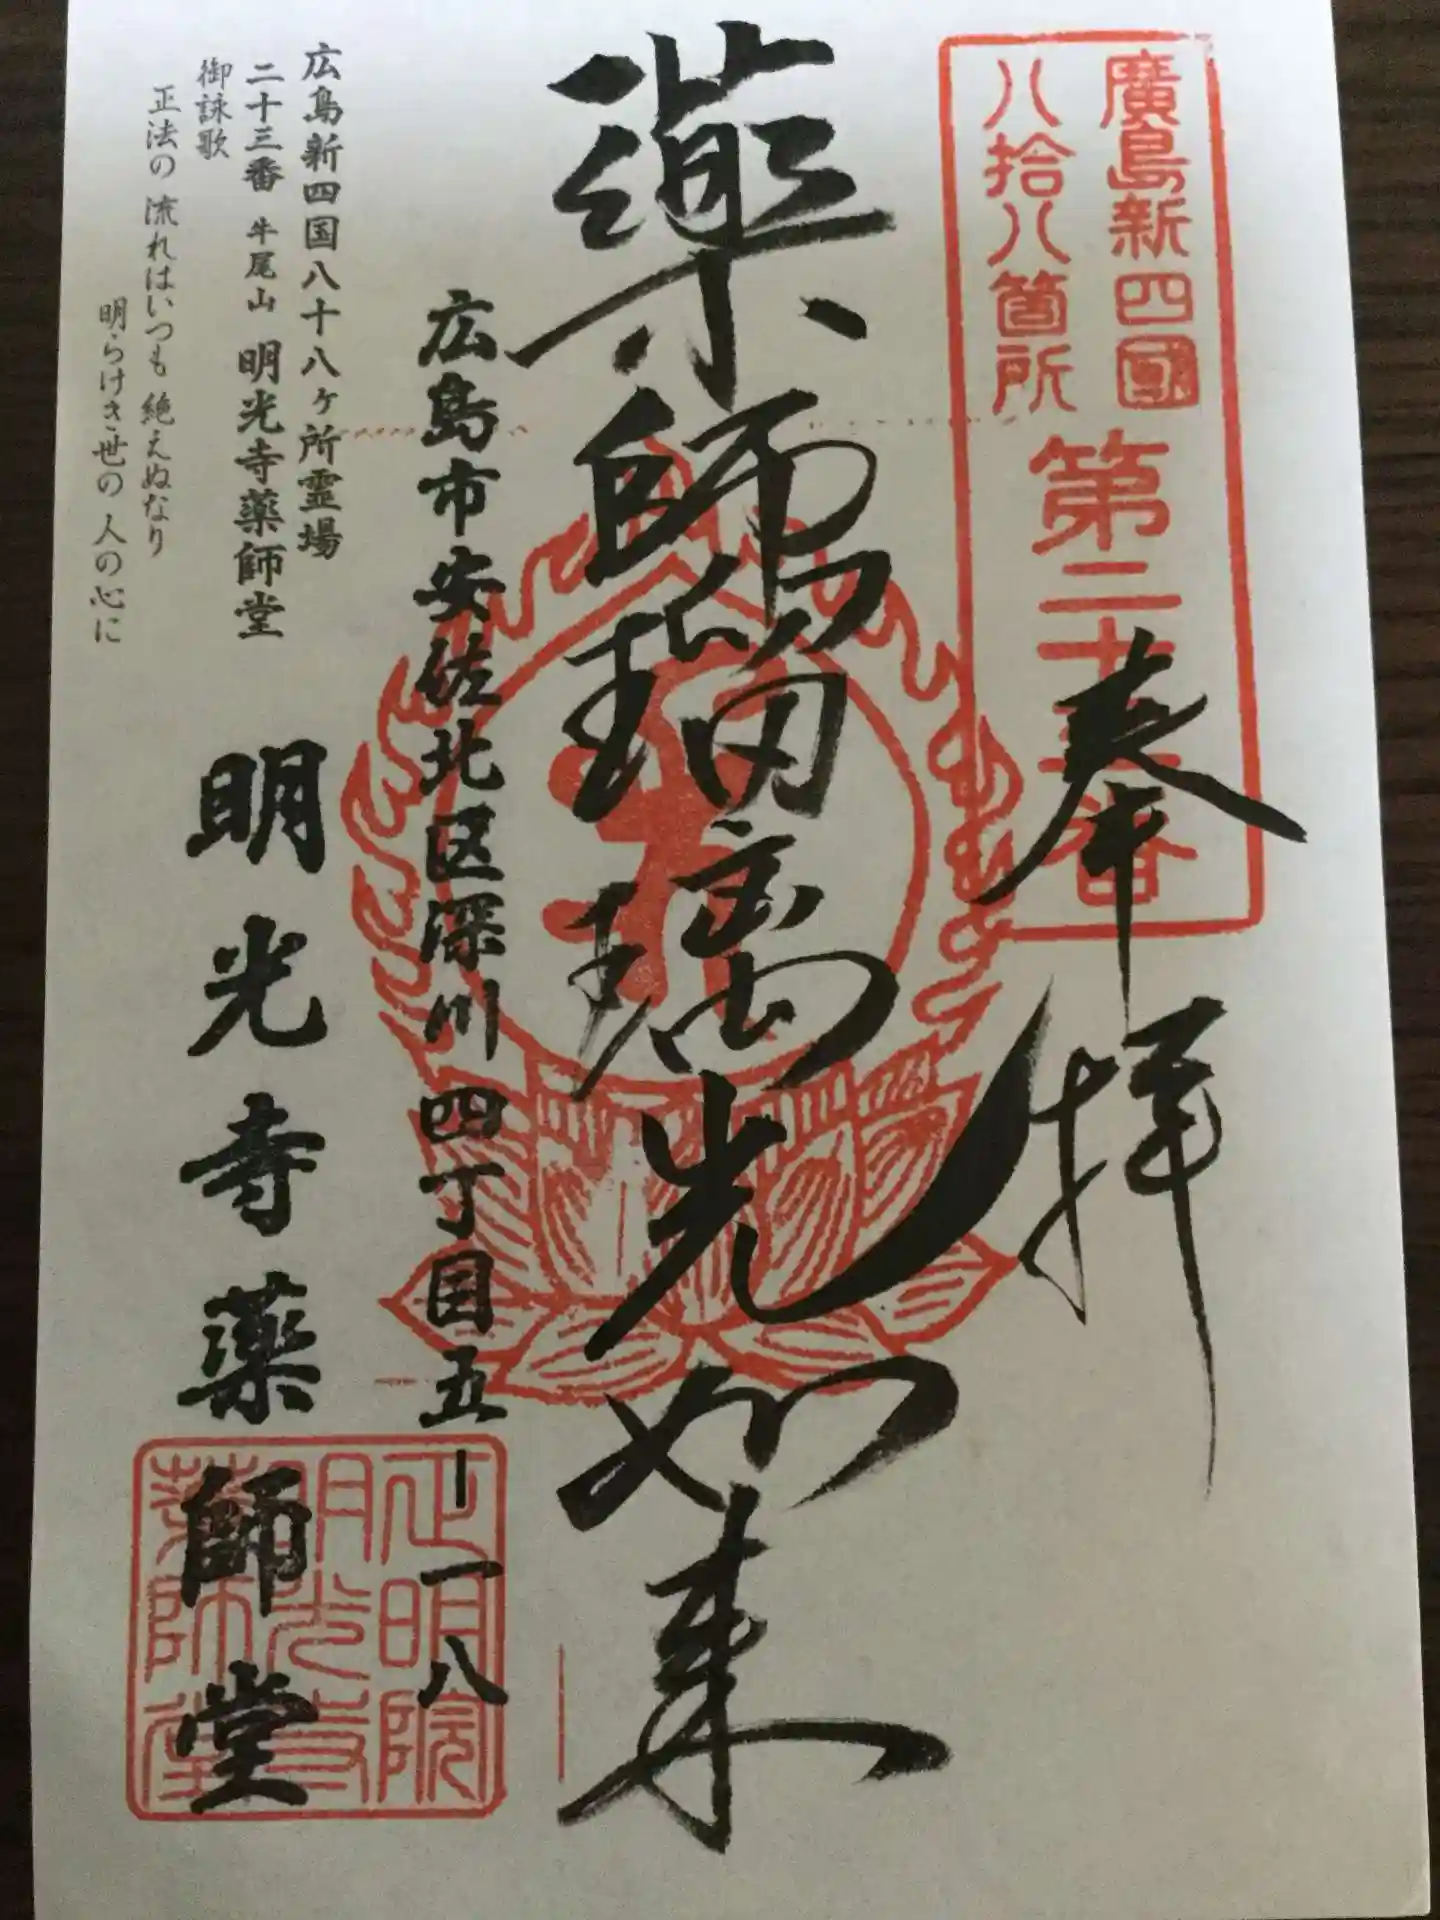 廣島新四國
八拾八箇所
第二十三番
奉拝
薬師瑠璃光如来
広島市安佐北区深川四丁目五ー一八
明光寺薬師堂
正明院
明光寺
薬師堂
広島新四国八十八ヶ所霊場
二十三番 牛尾山 明光寺薬師堂
御詠歌
正法の 流れはいつも 絶えぬなり
明らけき世の 人の心に